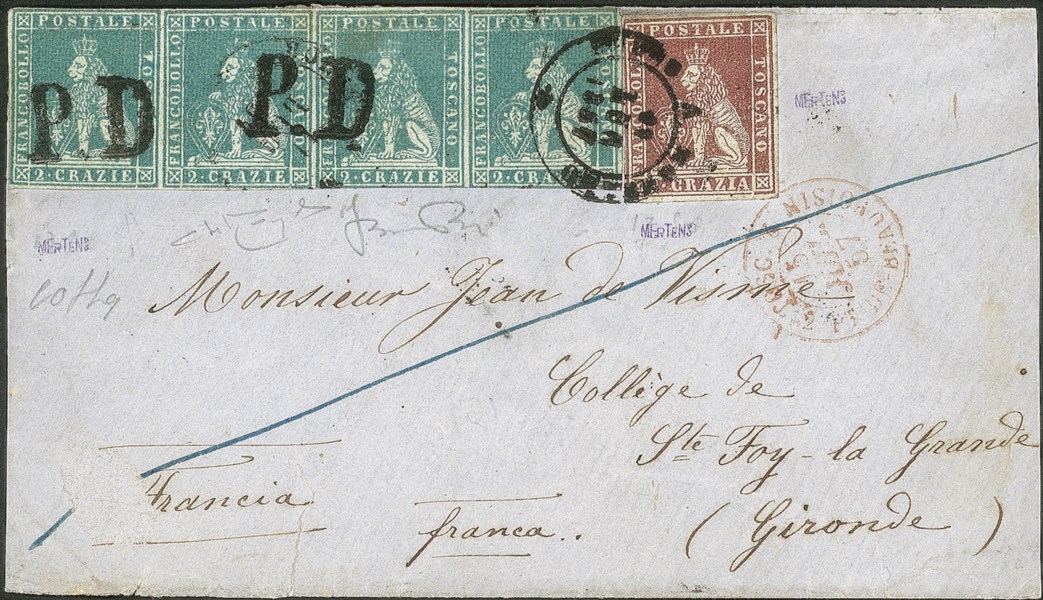 POSTALE POSTALE POSTALE POSTALE POSTALE
FRANCOBOLLO TOSCANO FRANCOBOLLO TOSCANO FRANCOBOLLO TOSCANO
P.D P.D
2·CRAZIE 2·CRAZIE 2·CRAZIE 2·CRAZIE CRAZIA
MERTENS
MERTENS MERTENS
PT BEAUVOISIN
57
Monsieur Jean de Visme
Collège de
Ste Foy-la Grande
Francia
franca..
(Gironde)